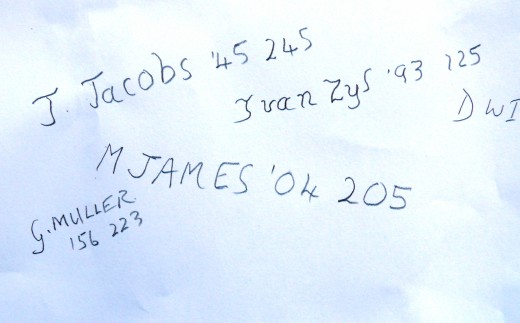 J. Jacobs '45 245
J van Zyl '93 125
D WI
M JAMES '04 205
G. MULLER
156 223